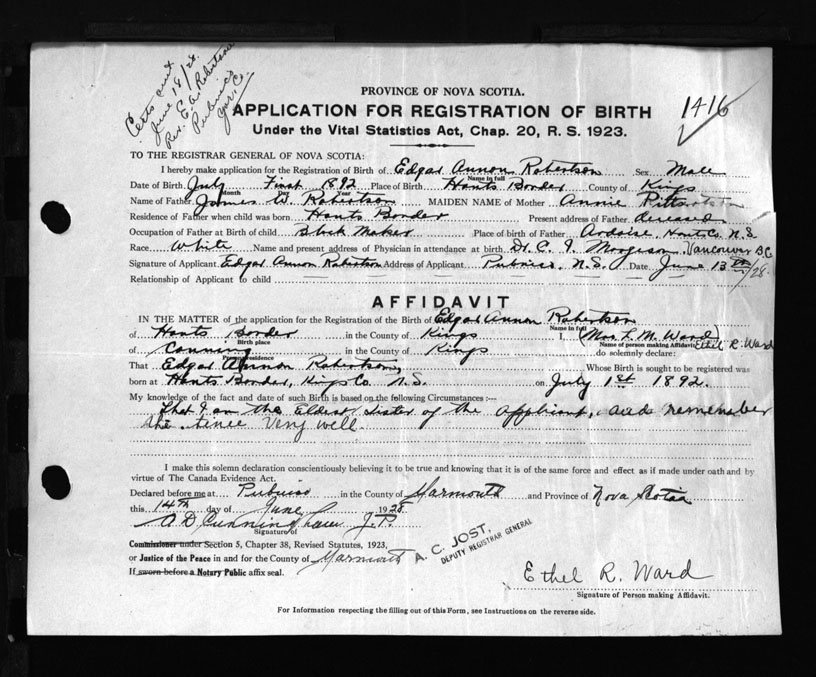 Certs sent
June 18/28.
Rev. E. A. Robertson
Pubnico
Yar. C.
PROVINCE OF NOVA SCOTIA.
APPLICATION FOR REGISTRATION OF BIRTH
1416
Under the Vital Statistics Act, Chap. 20, R. S. 1923.
TO THE REGISTRAR GENERAL OF NOVA SCOTIA:
I hereby make application for the Registration of Birth of Edgar Annon Robertson Sex Male
Name in full
Date of Birth July First 1892 Place of Birth Hants Border County of Kings
Month Day Year
Name of Father James W. Robertson MAIDEN NAME of Mother Annie Pitts
Residence of Father when child was born Hants Border Present address of Father deceased
Occupation of Father at Birth of child Block Maker Place of birth of Father Ardoise, Hants Co. N.S.
Race White Name and present address of Physician in attendance at birth Dr. C. I. Margeson, Vancouver B.C.
Signature of Applicant Edgar Annon Robertson Address of Applicant Pubnico, N.S. Date June 13th/28.
Relationship of Applicant to child
AFFIDAVIT
IN THE MATTER of the application for the Registration of the Birth of Edgar Annon Robertson
Name in full
of Hants Border in the County of Kings I, (Mrs. L. M. Ward)
Birth place Name of person making Affidavit Ethel R. Ward
of Canning in the County of Kings do solemnly declare:
Present residence
That Edgar Annon Robertson, Whose Birth is sought to be registered was
born at Hants Border, Kings Co. N.S. on July 1st 1892.
My knowledge of the fact and date of such Birth is based on the following Circumstances :—
That I am the Eldest Sister of the applicant, and remember
the time Very well
I make this solemn declaration conscientiously believing it to be true and knowing that it is of the same force and effect as if made under oath and by
virtue of The Canada Evidence Act.
Declared before me at Pubnico in the County of Yarmouth and Province of Nova Scotia
this 14th day of June 1928.
A D Cunningham J.P.
Signature of
Commissioner under Section 5, Chapter 38, Revised Statutes, 1923,
or Justice of the Peace in and for the County of Yarmouth
A. C. JOST,
DEPUTY REGISTRAR GENERAL
If sworn before a Notary Public affix seal.
Ethel R. Ward
Signature of Person making Affidavit.
For Information respecting the filling out of this Form, see Instructions on the reverse side.